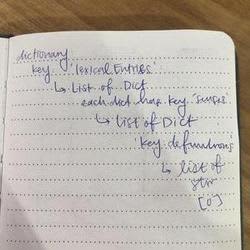 dictionary
key 'lexicalEntries'
↳ List of Dict
each dict has key 'senses'
↳ List of Dict
'key definitions'
↳ list of
str
[0]